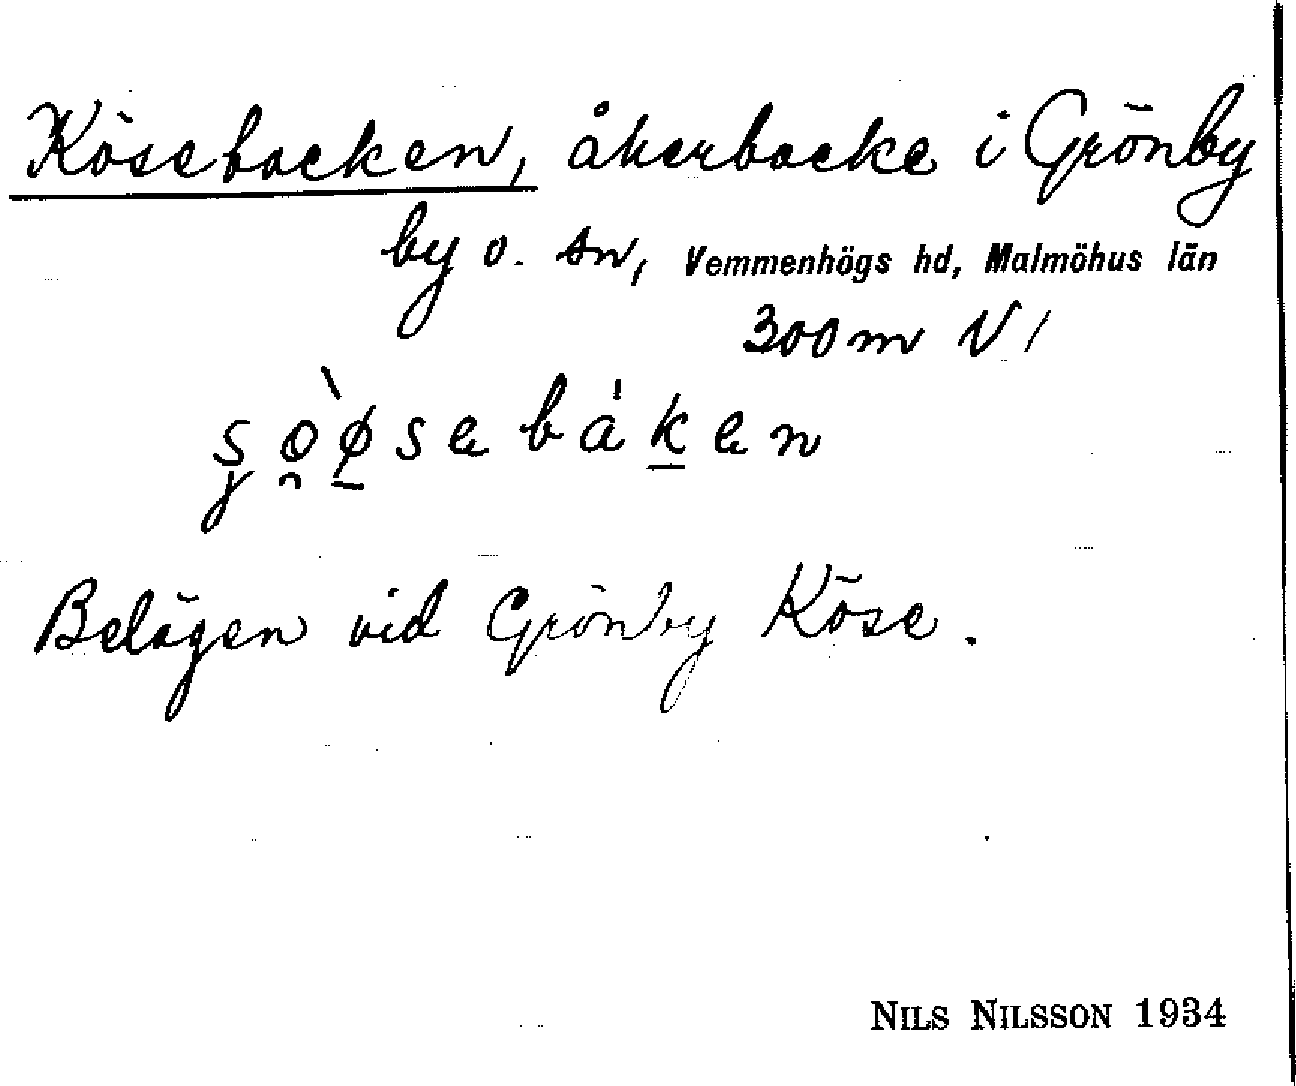 Kösebacken, åkerbacke i Grönby
by o. sn, Vemmenhögs hd, Malmöhus län
300 m V
Belägen vid Grönby Köse.
NILS NILSSON 1934